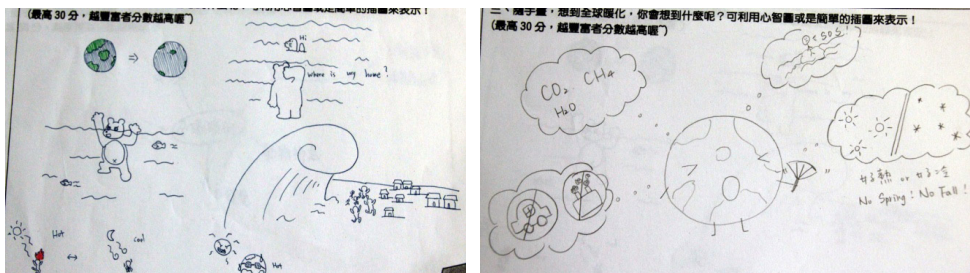 (最高 30 分，越豐富者分數越高喔~)
Hi
where is my home?
Hot
cool
Hot
三、隨手畫，想到全球暖化，你會想到什麼呢？可利用心智圖或是簡單的插圖來表示！
(最高 30 分，越豐富者分數越高喔~)
SOS!
CO2 CH4
H2O
好熱 or 好冷
No Spring! No Fall!